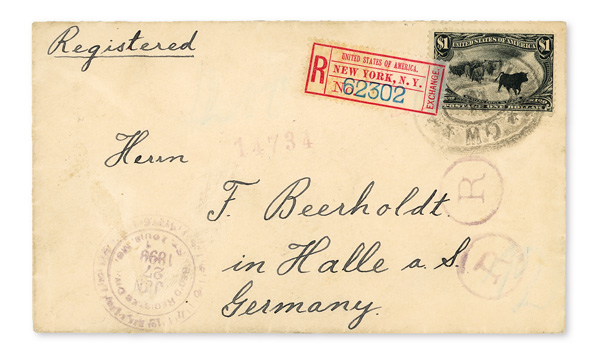 Registered
$1 UNITED STATES OF AMERICA $1
POSTAGE ONE DOLLAR
UNITED STATES OF AMERICA.
R NEW YORK, N.Y. EXCHANGE
No 62302
MO
14734
Herrn
R
F. Beerholdt.
R
in Halle a. S.
Germany.
27
1899